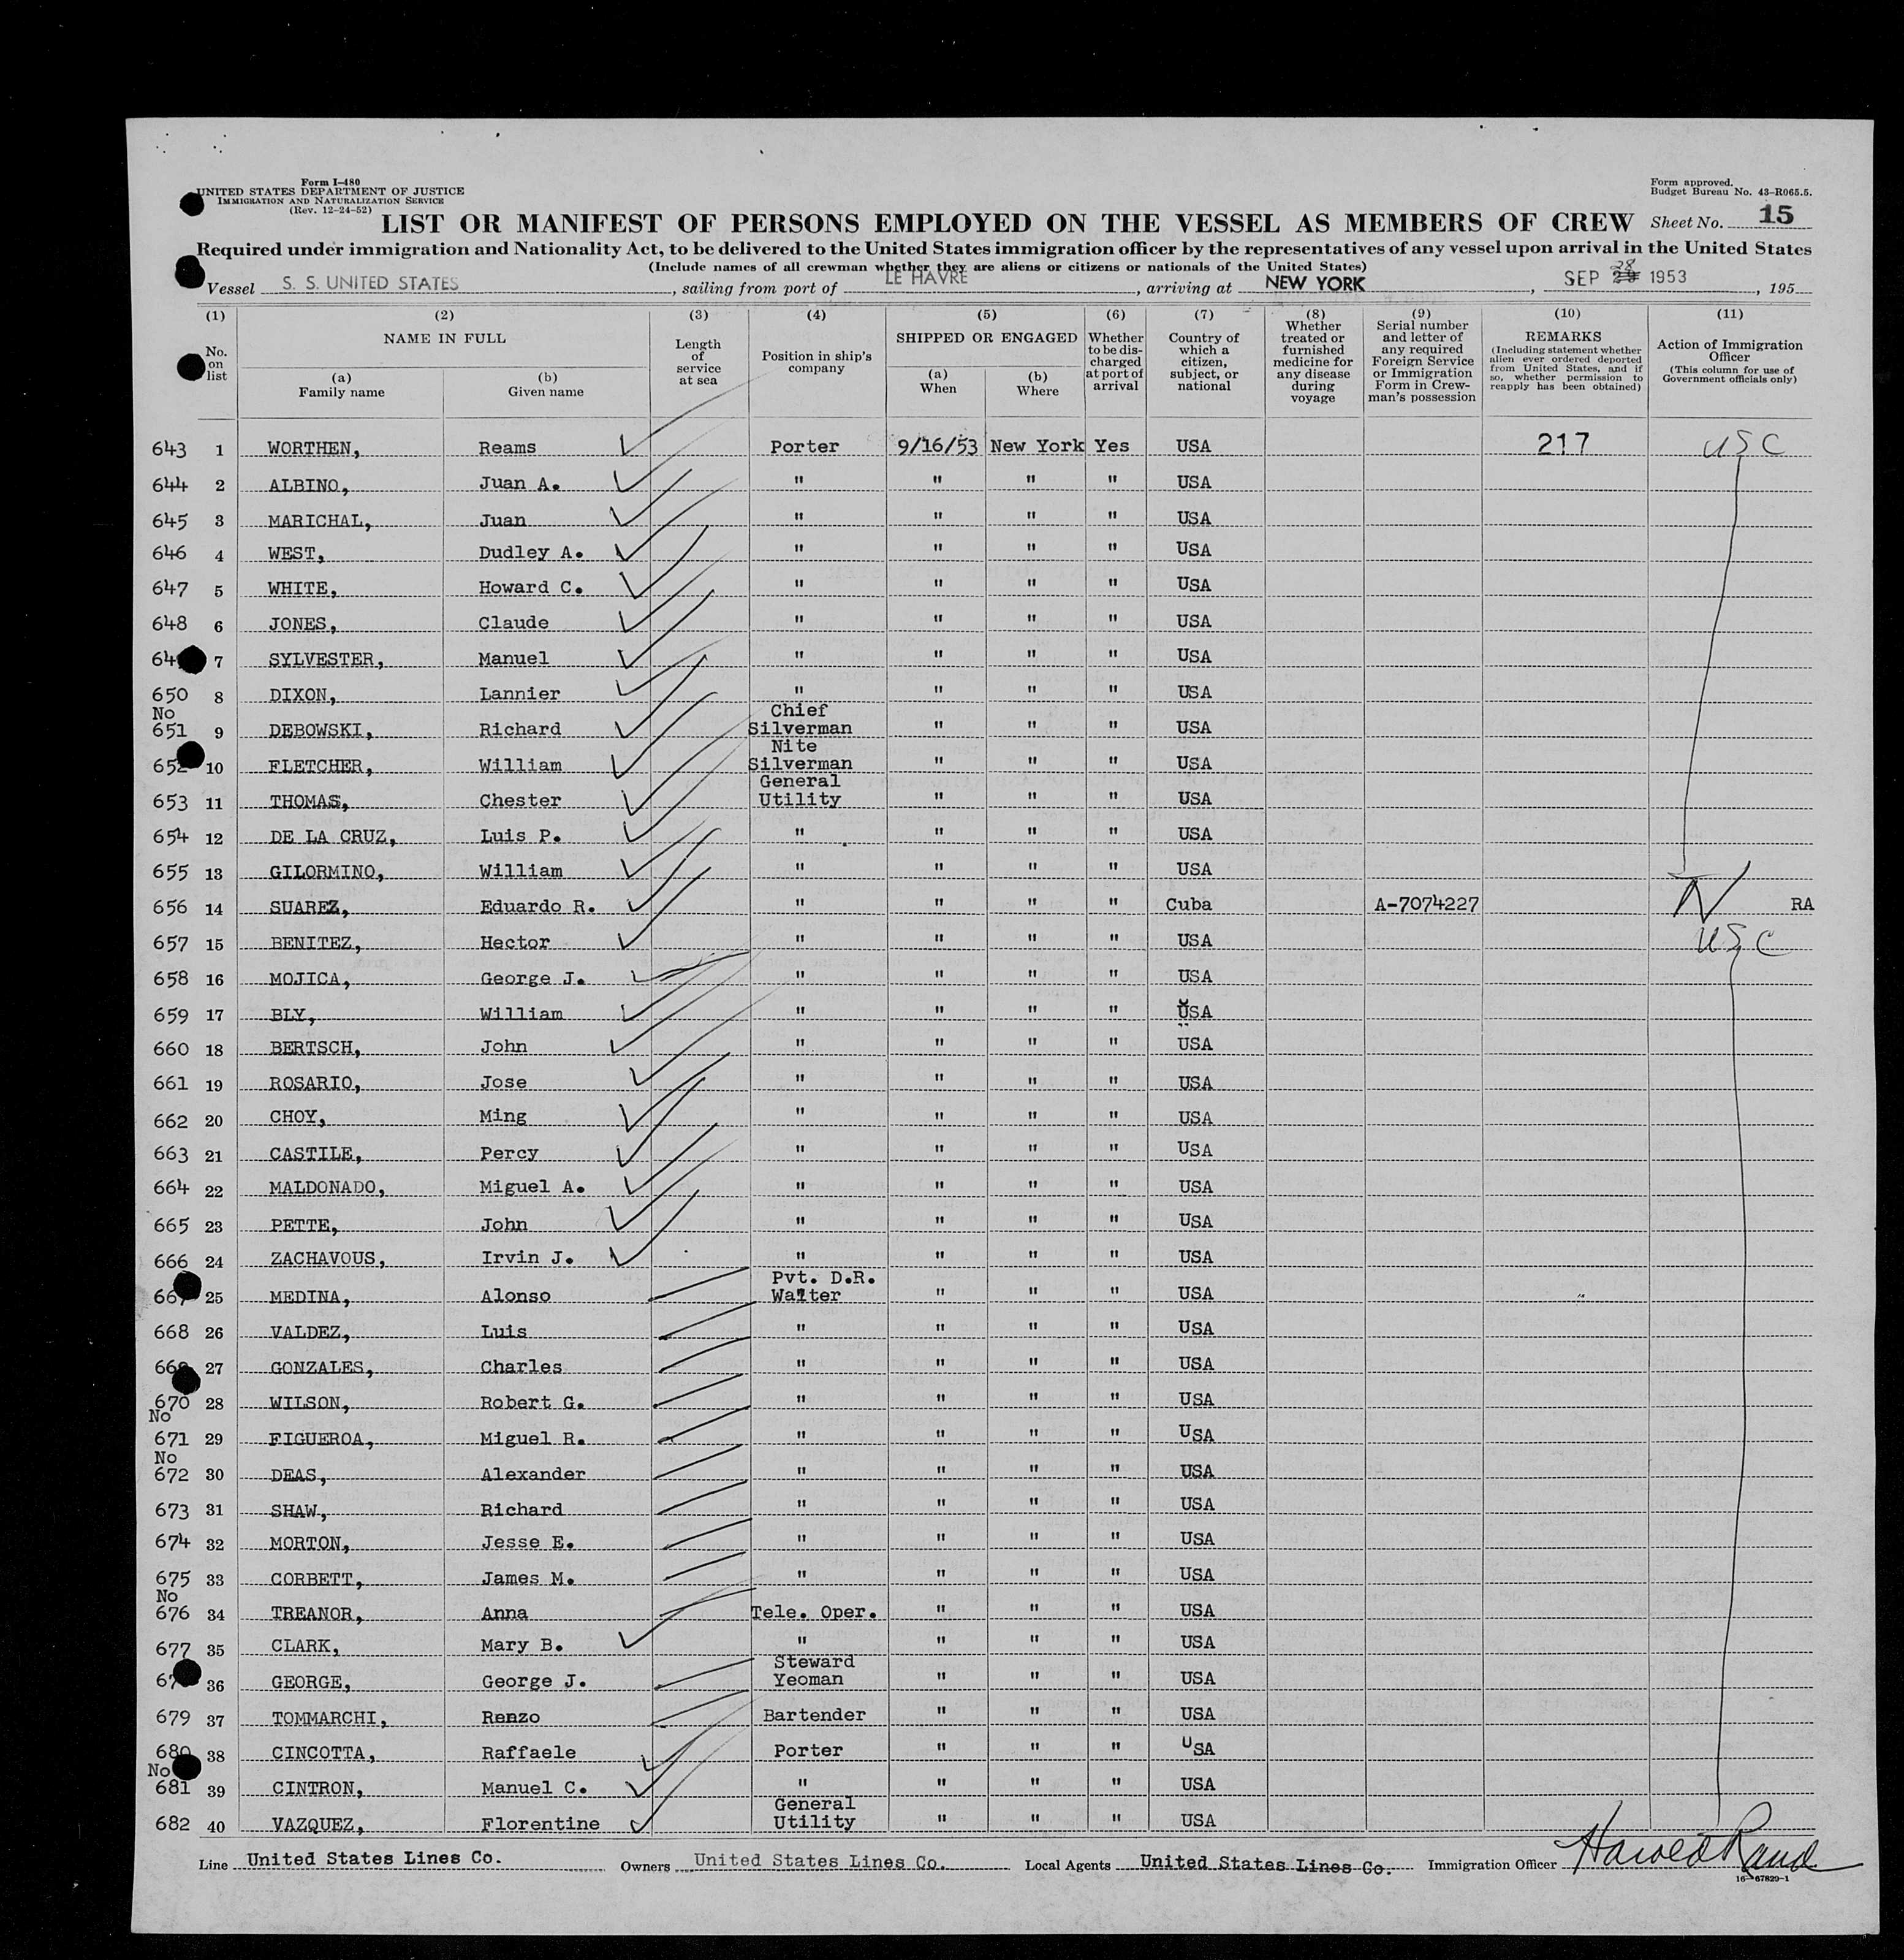 Form I-480
UNITED STATES DEPARTMENT OF JUSTICE
IMMIGRATION AND NATURALIZATION SERVICE
(Rev. 12-24-52)
Form approved.
Budget Bureau No. 43-R065.5.
LIST OR MANIFEST OF PERSONS EMPLOYED ON THE VESSEL AS MEMBERS OF CREW Sheet No. 15
Required under immigration and Nationality Act, to be delivered to the United States immigration officer by the representatives of any vessel upon arrival in the United States
(Include names of all crewman whether they are aliens or citizens or nationals of the United States)
Vessel S. S. UNITED STATES, sailing from port of LE HAVRE, arriving at NEW YORK, SEP 28 1953, 195
(1) No. on list
(2) NAME IN FULL (a) Family name (b) Given name
(3) Length of service at sea
(4) Position in ship's company
(5) SHIPPED OR ENGAGED (a) When (b) Where
(6) Whether to be discharged at port of arrival
(7) Country of which a citizen, subject, or national
(8) Whether treated or furnished medicine for any disease during voyage
(9) Serial number and letter of any required Foreign Service or Immigration Form in Crewman's possession
(10) REMARKS (Including statement whether alien ever ordered deported from United States, and if so, whether permission to reapply has been obtained)
(11) Action of Immigration Officer (This column for use of Government officials only)
643 1 WORTHEN, Reams Porter 9/16/53 New York Yes USA 217 USC
644 2 ALBINO, Juan A. " " " " USA
645 3 MARICHAL, Juan " " " " USA
646 4 WEST, Dudley A. " " " " USA
647 5 WHITE, Howard C. " " " " USA
648 6 JONES, Claude " " " " USA
64 7 SYLVESTER, Manuel " " " " USA
650 8 DIXON, Lannier " " " " USA
No
651 9 DEBOWSKI, Richard Chief Silverman " " " USA
652 10 FLETCHER, William Nite Silverman " " " USA
653 11 THOMAS, Chester General Utility " " " USA
654 12 DE LA CRUZ, Luis P. " " " " USA
655 13 GILORMINO, William " " " " USA
656 14 SUAREZ, Eduardo R. " " " " Cuba A-7074227 RA
657 15 BENITEZ, Hector " " " " USA USC
658 16 MOJICA, George J. " " " " USA
659 17 BLY, William " " " " USA
660 18 BERTSCH, John " " " " USA
661 19 ROSARIO, Jose " " " " USA
662 20 CHOY, Ming " " " " USA
663 21 CASTILE, Percy " " " " USA
664 22 MALDONADO, Miguel A. " " " " USA
665 23 PETTE, John " " " " USA
666 24 ZACHAVOUS, Irvin J. " " " " USA
667 25 MEDINA, Alonso Pvt. D.R. Waiter " " " USA
668 26 VALDEZ, Luis " " " " USA
669 27 GONZALES, Charles " " " " USA
670 28 WILSON, Robert G. " " " " USA
No
671 29 FIGUEROA, Miguel R. " " " " USA
No
672 30 DEAS, Alexander " " " " USA
673 31 SHAW, Richard " " " " USA
674 32 MORTON, Jesse E. " " " " USA
675 33 CORBETT, James M. " " " " USA
No
676 34 TREANOR, Anna Tele. Oper. " " " USA
677 35 CLARK, Mary B. " " " " USA
67 36 GEORGE, George J. Steward Yeoman " " " USA
679 37 TOMMARCHI, Renzo Bartender " " " USA
680 38 CINCOTTA, Raffaele Porter " " " USA
No
681 39 CINTRON, Manuel C. " " " " USA
682 40 VAZQUEZ, Florentine General Utility " " " USA
Line United States Lines Co. Owners United States Lines Co. Local Agents United States Lines Co. Immigration Officer Harold Rand
16-67829-1